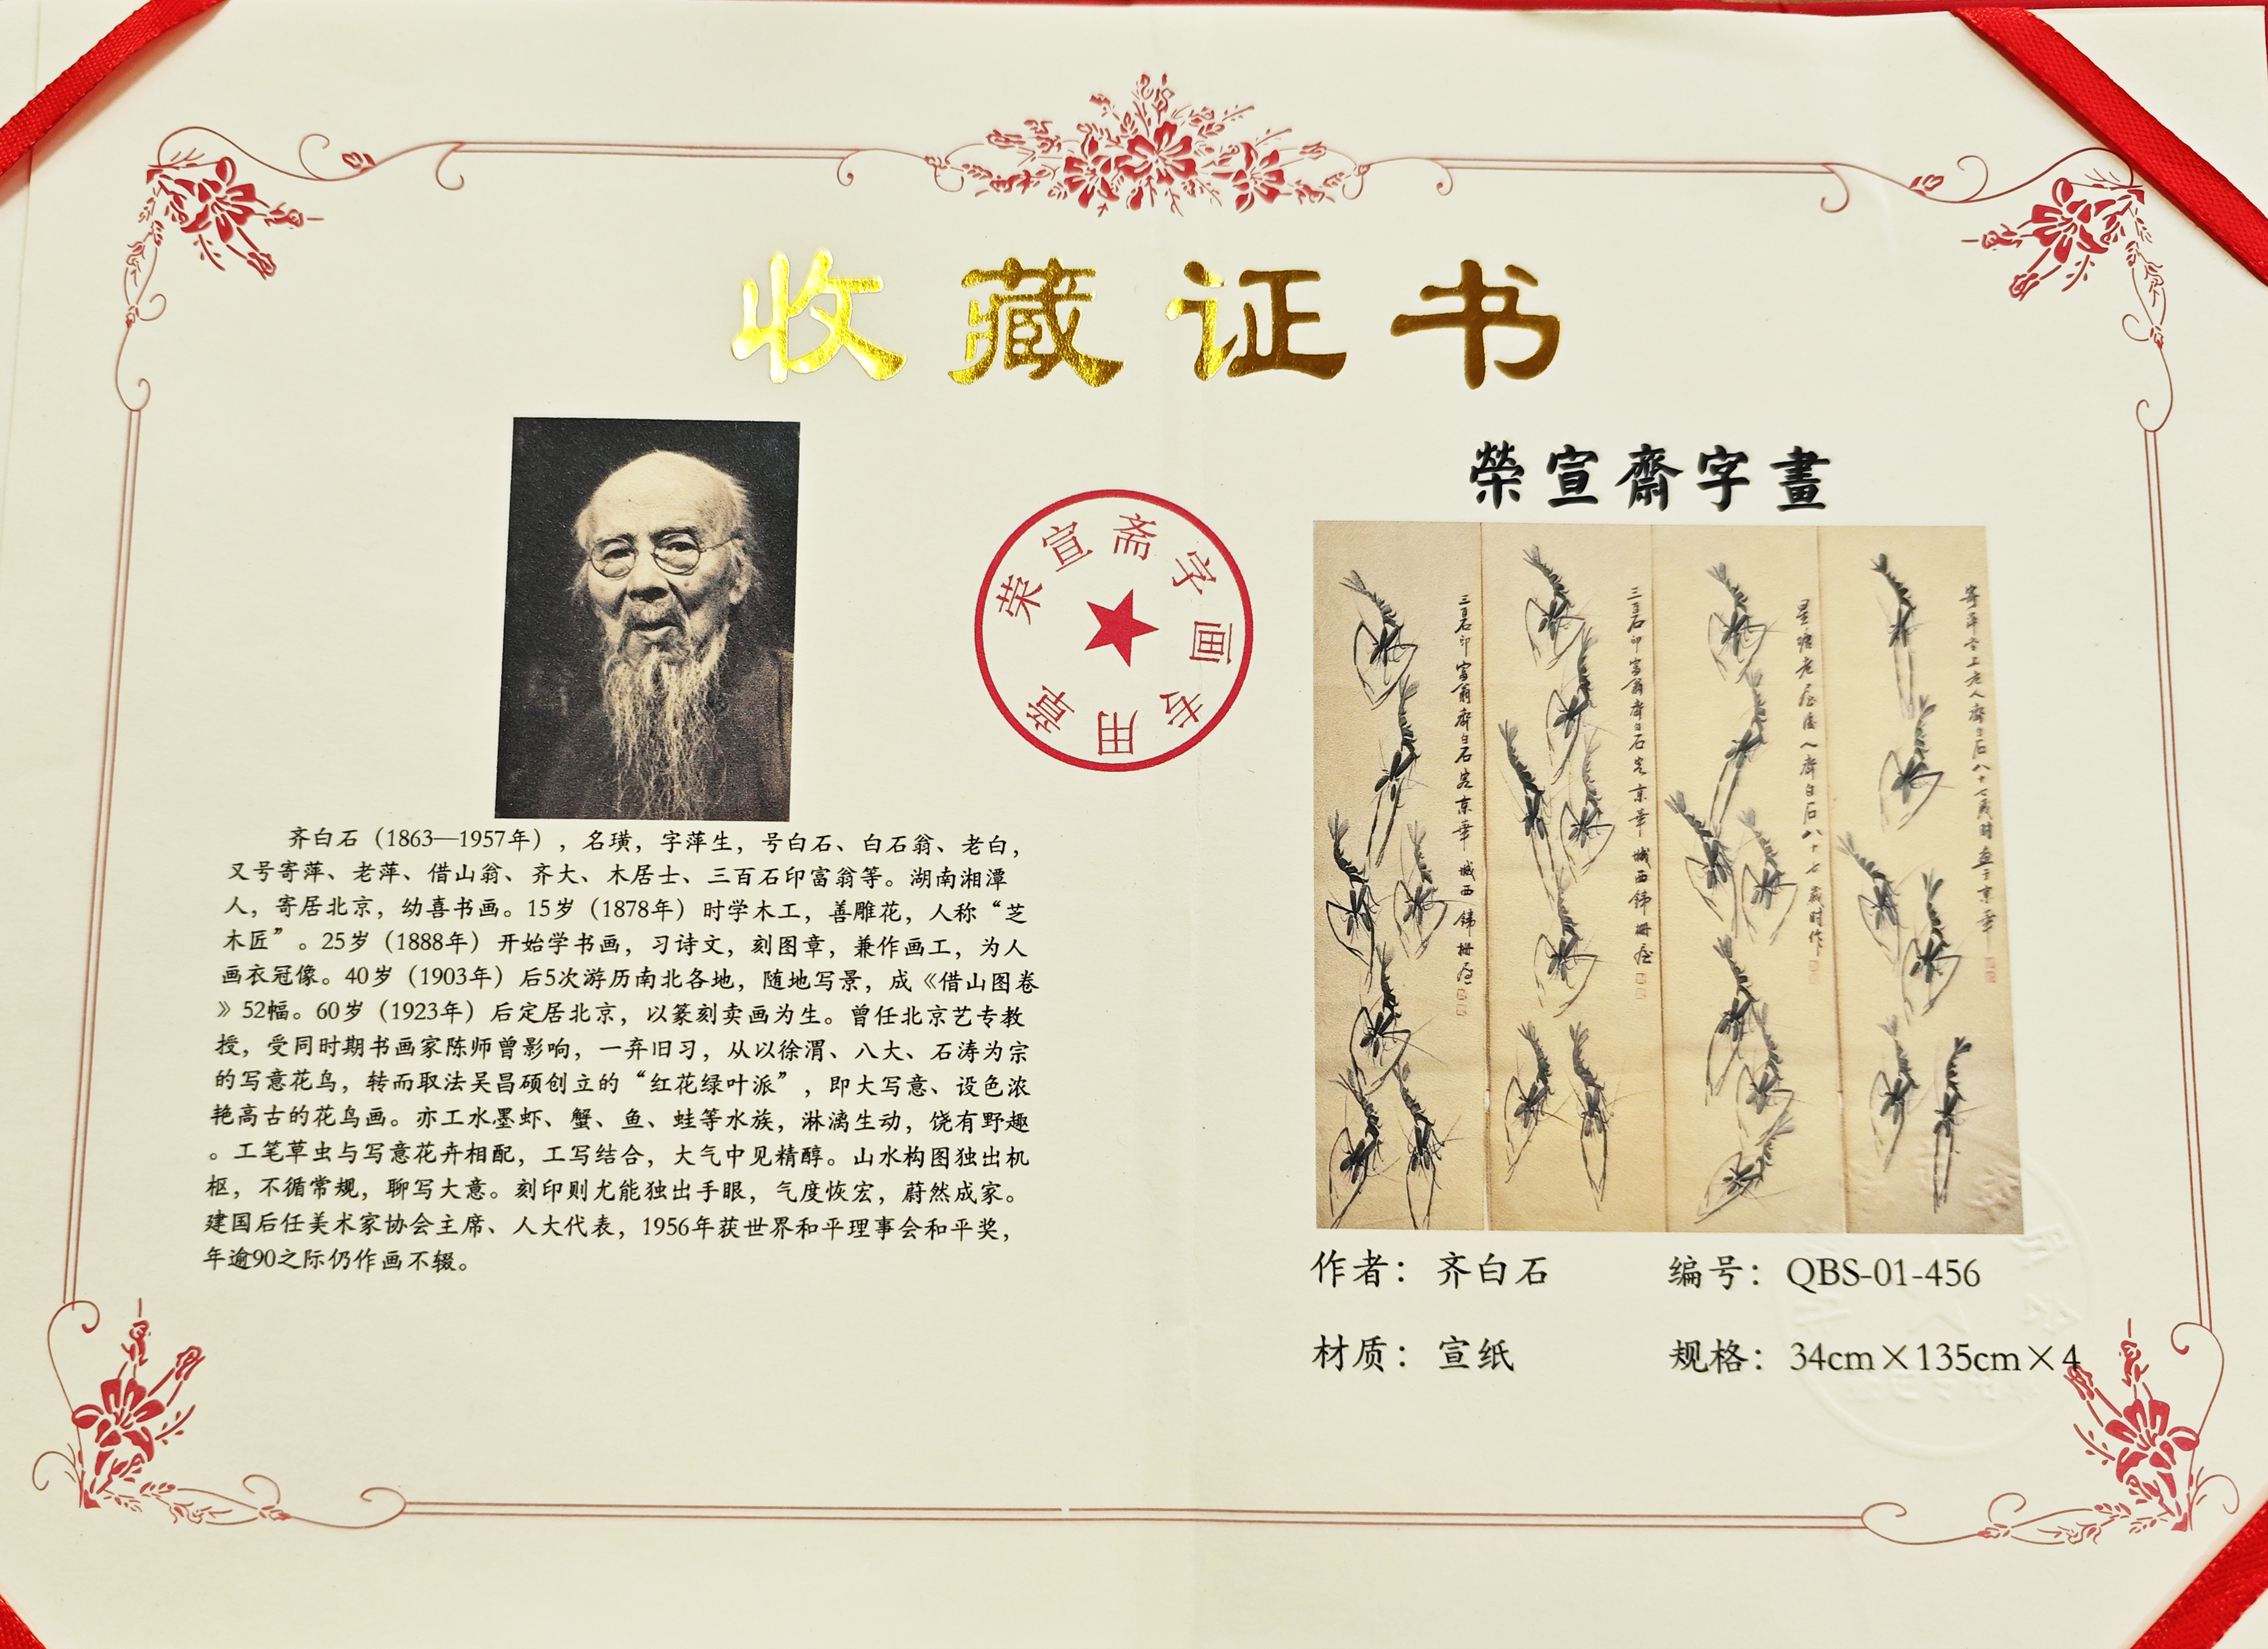 收藏证书
榮宣齋字畫
荣宣斋字画专用章
齐白石（1863—1957年），名璜，字萍生，号白石、白石翁、老白，
又号寄萍、老萍、借山翁、齐大、木居士、三百石印富翁等。湖南湘潭
人，寄居北京，幼喜书画。15岁（1878年）时学木工，善雕花，人称“芝
木匠”。25岁（1888年）开始学书画，习诗文，刻图章，兼作画工，为人
画衣冠像。40岁（1903年）后5次游历南北各地，随地写景，成《借山图卷
》52幅。60岁（1923年）后定居北京，以篆刻卖画为生。曾任北京艺专教
授，受同时期书画家陈师曾影响，一弃旧习，从以徐渭、八大、石涛为宗
的写意花鸟，转而取法吴昌硕创立的“红花绿叶派”，即大写意、设色浓
艳高古的花鸟画。亦工水墨虾、蟹、鱼、蛙等水族，淋漓生动，饶有野趣
。工笔草虫与写意花卉相配，工写结合，大气中见精醇。山水构图独出机
枢，不循常规，聊写大意。刻印则尤能独出手眼，气度恢宏，蔚然成家。
建国后任美术家协会主席、人大代表，1956年获世界和平理事会和平奖，
年逾90之际仍作画不辍。
寄萍堂上老人齊白石八十七歲時畫于京華
星塘老屋後人齊白石八十七歲時作
三百石印富翁齊白石客京華城西鐵柵屋
三百石印富翁齊白石客京華城西鐵柵屋
作者：齐白石 编号：QBS-01-456
材质：宣纸 规格：34cm×135cm×4